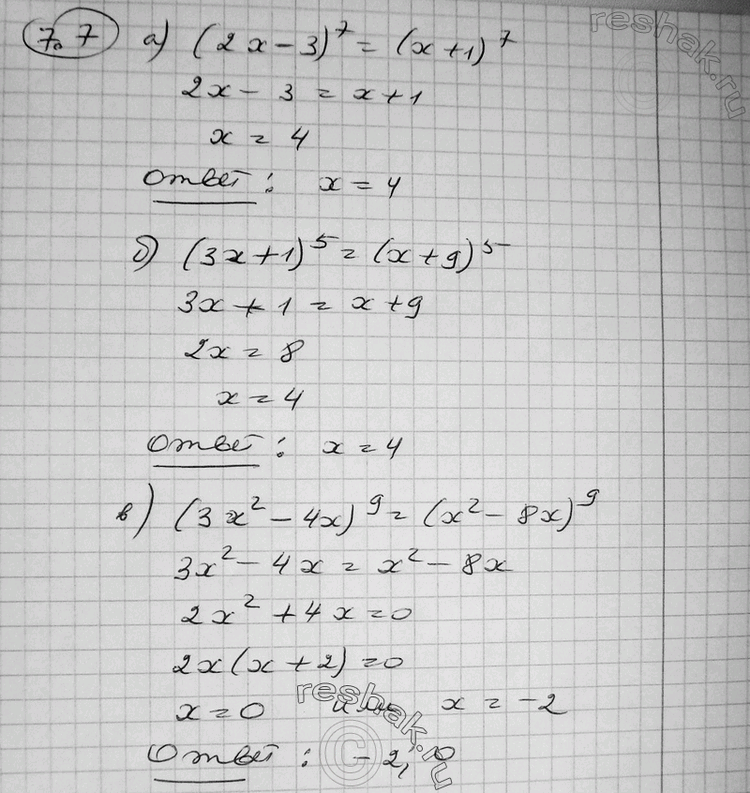 7.7 а) (2x-3)^7 = (x+1)^7
2x - 3 = x+1
x = 4
Ответ: x = 4
б) (3x+1)^5 = (x+9)^5
3x + 1 = x+9
2x = 8
x = 4
Ответ: x = 4
в) (3x² - 4x)^9 = (x² - 8x)^9
3x² - 4x = x² - 8x
2x² + 4x = 0
2x(x+2) = 0
x = 0 или x = -2
Ответ: -2; 0
reshak.ru
reshak.ru